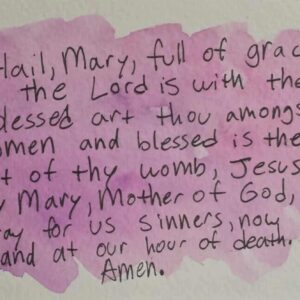 Hail, Mary, full of grac
the Lord is with the
blessed art thou amongs
omen and blessed is the
t of thy womb, Jesus
y Mary, Mother of God,
ray for us sinners, now
and at our hour of death.
Amen.